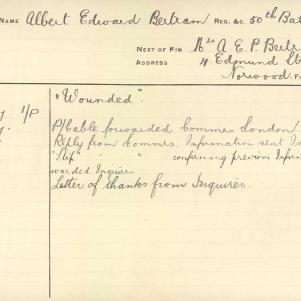 NAME Albert Edward Bertram REG. &C. 50th Bat
NEXT OF KIN Mrs A. E. P. Bertr
ADDRESS 4. Edmund St
Norwood.
1/P "Wounded".
P/Cable forwarded Commrs London
Reply from Commrs. Information sent In
"Slip" " " confirming previous Inform
warded Inquirer
Letter of thanks from Inquirer.